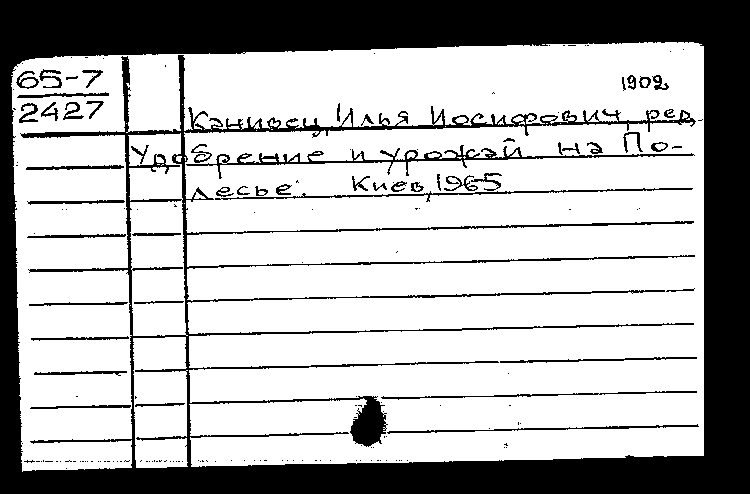 65-7
2427
1902
Канивец, Илья Иосифович, ред.
Удобрение и урожай на По-
лесье. Киев, 1965